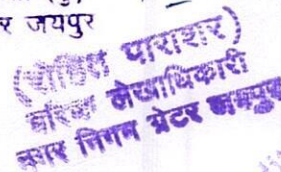 र जयपुर
(रोहित पाराशर)
वरिष्ठ लेखाधिकारी
नगर निगम ग्रेटर जयपुर